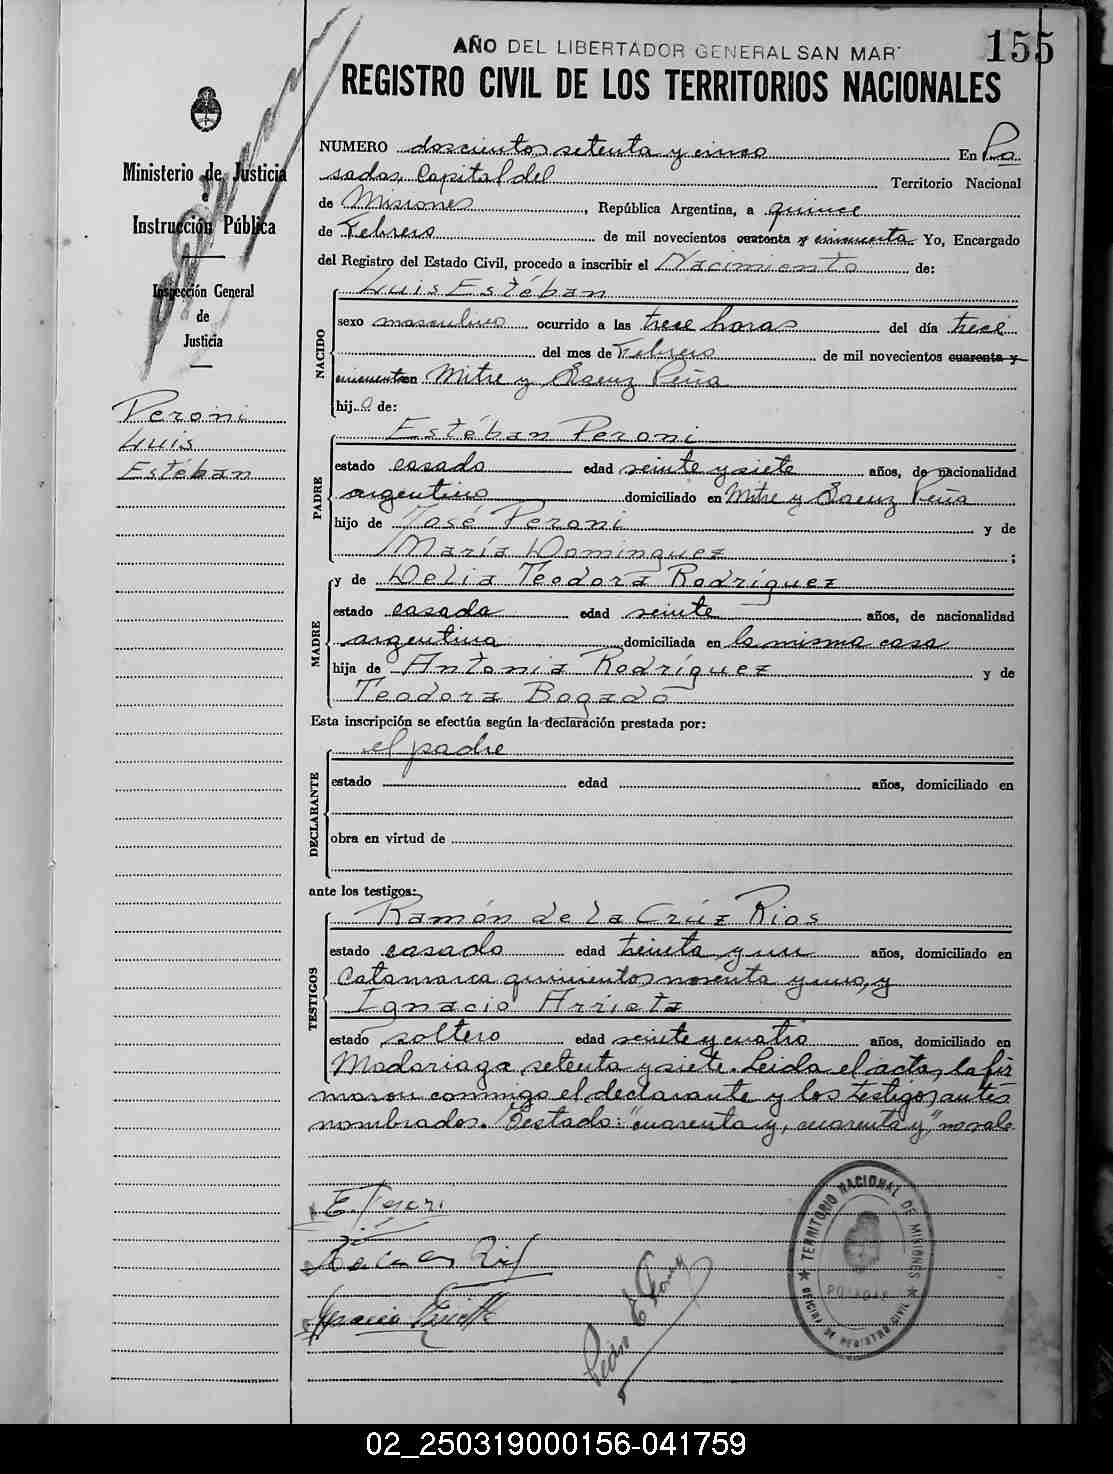 AÑO DEL LIBERTADOR GENERAL SAN MAR
155
REGISTRO CIVIL DE LOS TERRITORIOS NACIONALES
Ministerio de Justicia
e
Instrucción Pública
Inspección General
de
Justicia
Peroni
Luis
Estéban
NUMERO doscientos setenta y cinco En Po
sadas, Capital del Territorio Nacional
de Misiones, República Argentina, a quince
de Febrero de mil novecientos cuarenta y cincuenta Yo, Encargado
del Registro del Estado Civil, procedo a inscribir el Nacimiento de:
NACIDO
Luis Estéban
sexo masculino ocurrido a las trece horas del día trece
del mes de Febrero de mil novecientos cuarenta y
cincuenta en Mitre y Saenz Peña
hijo de:
PADRE
Estéban Peroni
estado casado edad veinte y siete años, de nacionalidad
argentino domiciliado en Mitre y Saenz Peña
hijo de José Peroni y de
María Dominguez;
MADRE
y de Delia Teodora Rodríguez
estado casada edad veinte años, de nacionalidad
argentina domiciliada en la misma casa
hija de Antonia Rodríguez y de
Teodora Bogado
Esta inscripción se efectúa según la declaración prestada por:
DECLARANTE
el padre
estado edad años, domiciliado en
obra en virtud de
ante los testigos:
TESTIGOS
Ramón de la Crúz Rios
estado casado edad treinta y un años, domiciliado en
Catamarca quinientos noventa y uno, y
Ignacio Arrieta
estado soltero edad veinte y cuatro años, domiciliado en
Madariaga setenta y siete. Leida el acta, la fir
maron conmigo el declarante y los testigos antes
nombrados. Testado: "cuarenta y, cuarenta y," no vale
E. Peroni
Ramon Rios
Ignacio Arrieta
TERRITORIO NACIONAL DE MISIONES
POSADAS
OFICINA DE REGISTRO CIVIL
02_250319000156-041759